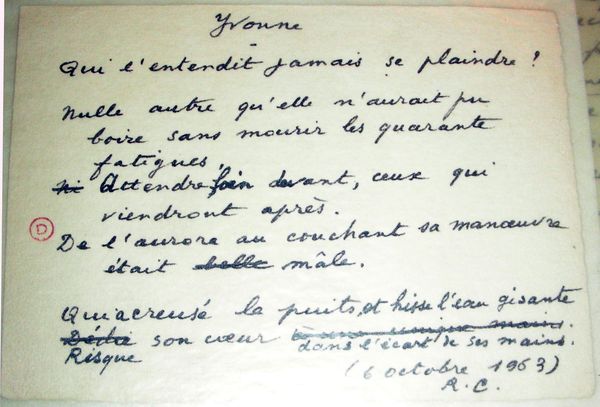 Yvonne
Qui l'entendit jamais se plaindre ?
Nulle autre qu'elle n'aurait pu
boire sans mourir les quarante
fatigues,
Attendre, loin devant, ceux qui
viendront après.
D
De l'aurore au couchant sa manœuvre
était belle mâle.
Qui a creusé le puits, et hisse l'eau gisante
Dédie son cœur
Risque dans l'écart de ses mains.
(6 octobre 1963)
R. C.